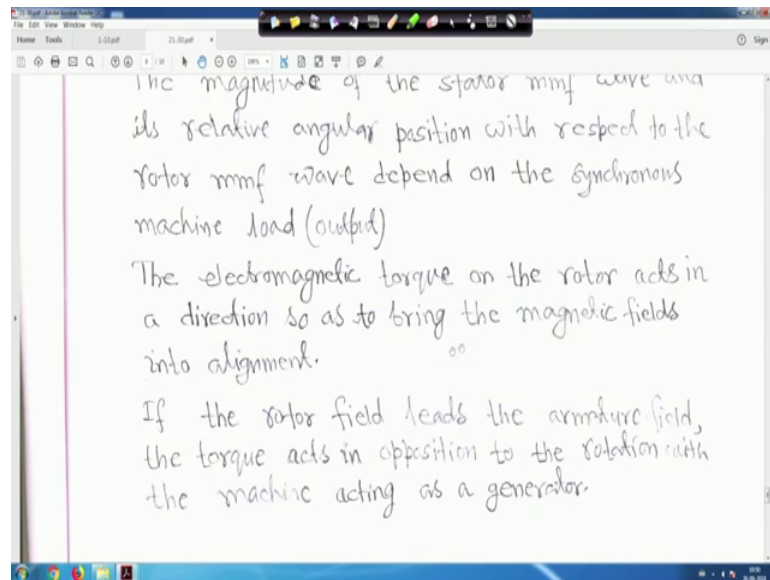 21-30.pdf - Adobe Acrobat Reader DC
File Edit View Window Help
Home Tools 1-10.pdf 21-30.pdf × Sign
The magnitude of the stator mmf wave and
its relative angular position with respect to the
rotor mmf wave depend on the synchronous
machine load (output)
The electromagnetic torque on the rotor acts in
a direction so as to bring the magnetic fields
into alignment.
If the rotor field leads the armature field,
the torque acts in opposition to the rotation with
the machine acting as a generator.